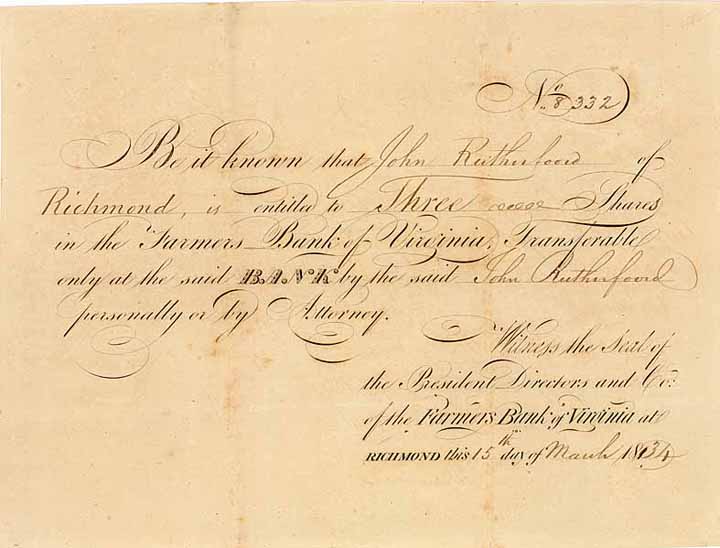 No. 8332
Be it known that John Rutherfoord of
Richmond, is entitled to Three Shares
in the Farmers Bank of Virginia, Transferable
only at the said BANK by the said John Rutherfoord
personally or by Attorney.
Witness the Seal of
the President Directors and Co:
of the Farmers Bank of Virginia at
RICHMOND this 15th day of March 1834